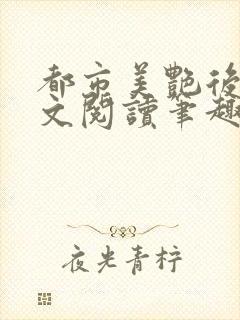 都市美艷後
文閱讀筆趣
夜光青柠